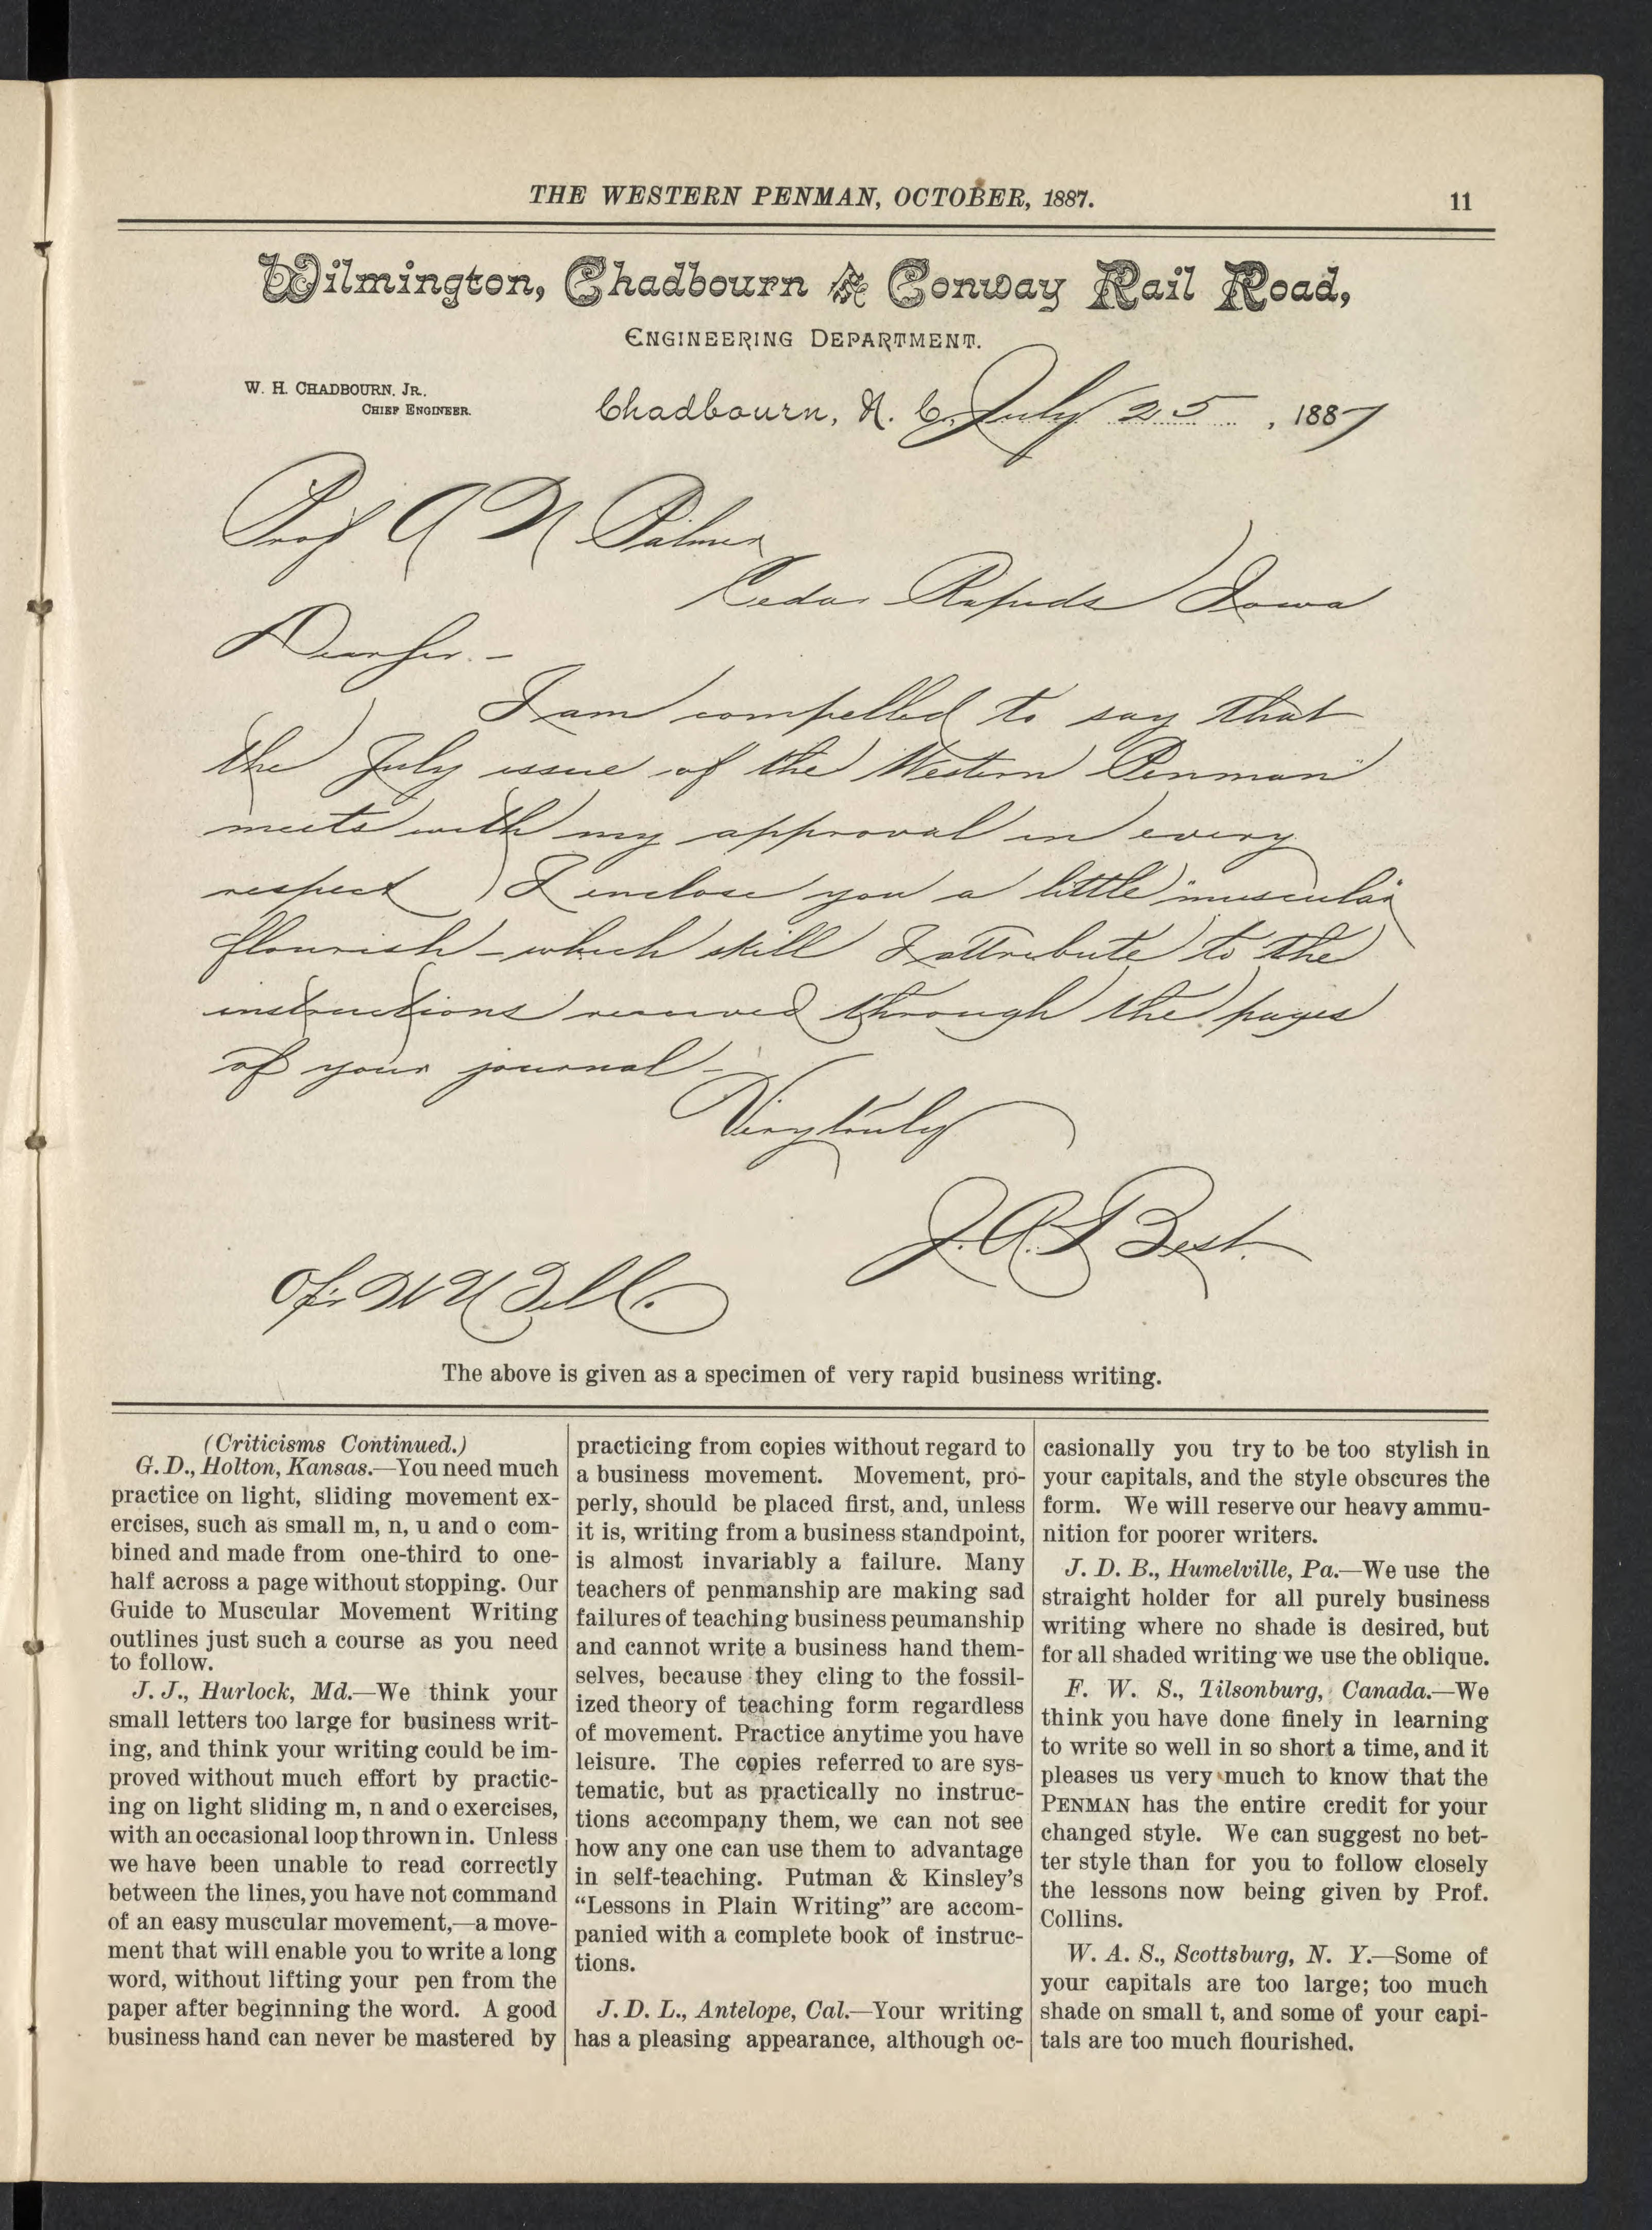 THE WESTERN PENMAN, OCTOBER, 1887.
11
Wilmington, Chadbourn & Conway Rail Road,
ENGINEERING DEPARTMENT.
W. H. CHADBOURN, JR.
CHIEF ENGINEER.
Chadbourn, N. C. July 25, 1887
Prof A N Palmer
Cedar Rapids Iowa
Dear Sir. -
I am compelled to say that
the July issue of the "Western Penman"
meets with my approval in every
respect I enclose you a little "muscular"
flourish - which skill I attribute to the
instructions received through the pages
of your journal -
Very truly
J. A. Best.
Opr W U Tel Co.
The above is given as a specimen of very rapid business writing.
(Criticisms Continued.)
G. D., Holton, Kansas.—You need much
practice on light, sliding movement ex-
ercises, such as small m, n, u and o com-
bined and made from one-third to one-
half across a page without stopping. Our
Guide to Muscular Movement Writing
outlines just such a course as you need
to follow.
J. J., Hurlock, Md.—We think your
small letters too large for business writ-
ing, and think your writing could be im-
proved without much effort by practic-
ing on light sliding m, n and o exercises,
with an occasional loop thrown in. Unless
we have been unable to read correctly
between the lines, you have not command
of an easy muscular movement,—a move-
ment that will enable you to write a long
word, without lifting your pen from the
paper after beginning the word. A good
business hand can never be mastered by
practicing from copies without regard to
a business movement. Movement, pro-
perly, should be placed first, and, unless
it is, writing from a business standpoint,
is almost invariably a failure. Many
teachers of penmanship are making sad
failures of teaching business peumanship
and cannot write a business hand them-
selves, because they cling to the fossil-
ized theory of teaching form regardless
of movement. Practice anytime you have
leisure. The copies referred to are sys-
tematic, but as practically no instruc-
tions accompany them, we can not see
how any one can use them to advantage
in self-teaching. Putman & Kinsley's
“Lessons in Plain Writing” are accom-
panied with a complete book of instruc-
tions.
J. D. L., Antelope, Cal.—Your writing
has a pleasing appearance, although oc-
casionally you try to be too stylish in
your capitals, and the style obscures the
form. We will reserve our heavy ammu-
nition for poorer writers.
J. D. B., Humelville, Pa.—We use the
straight holder for all purely business
writing where no shade is desired, but
for all shaded writing we use the oblique.
F. W. S., Tilsonburg, Canada.—We
think you have done finely in learning
to write so well in so short a time, and it
pleases us very much to know that the
PENMAN has the entire credit for your
changed style. We can suggest no bet-
ter style than for you to follow closely
the lessons now being given by Prof.
Collins.
W. A. S., Scottsburg, N. Y.—Some of
your capitals are too large; too much
shade on small t, and some of your capi-
tals are too much flourished.